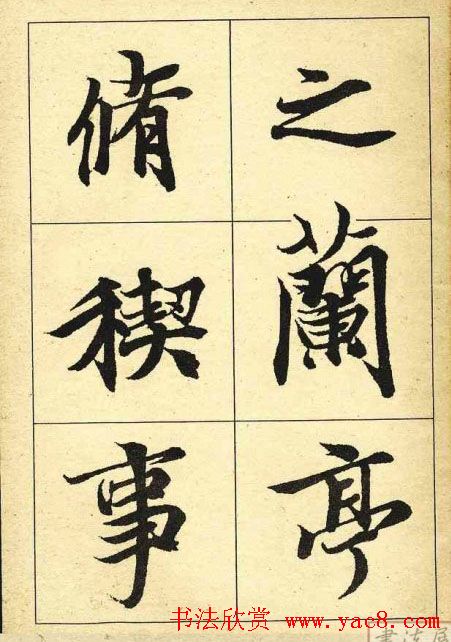 之蘭亭
脩稧事
书法欣赏 www.yac8.com